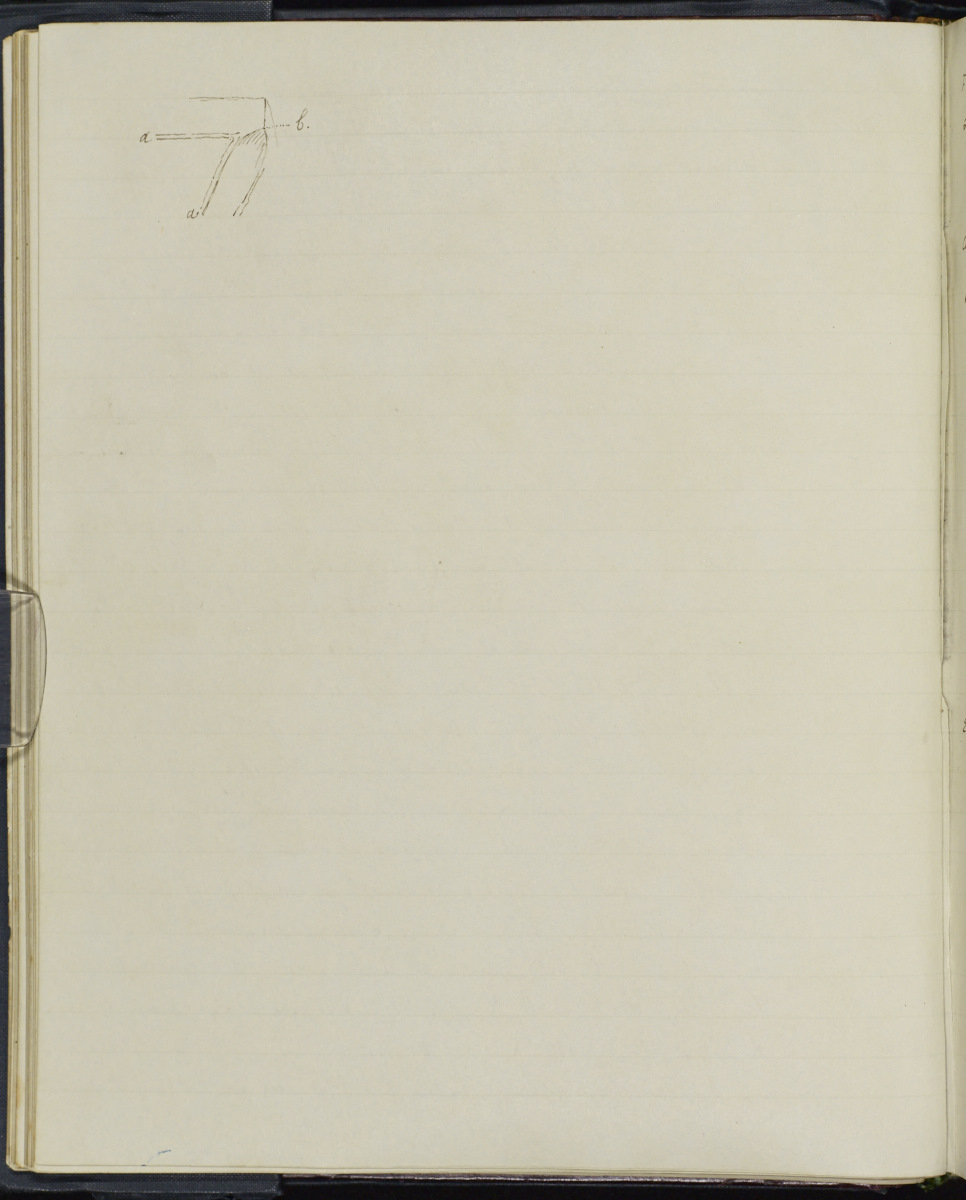 a b.
a